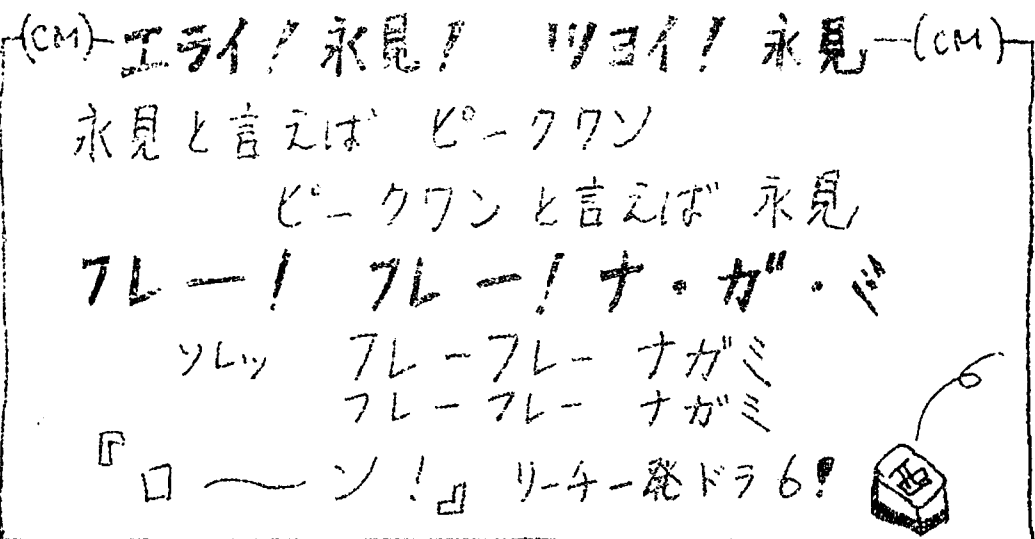 (CM) エライ！永見！ ツヨイ！永見 (CM)
永見と言えば ピークワン
ピークワンと言えば 永見
フレー！ フレー！ナ・ガ・ミ
ソレッ フレーフレー ナガミ
フレーフレー ナガミ
『ロ〜ン！』 リーチ一発ドラ6！